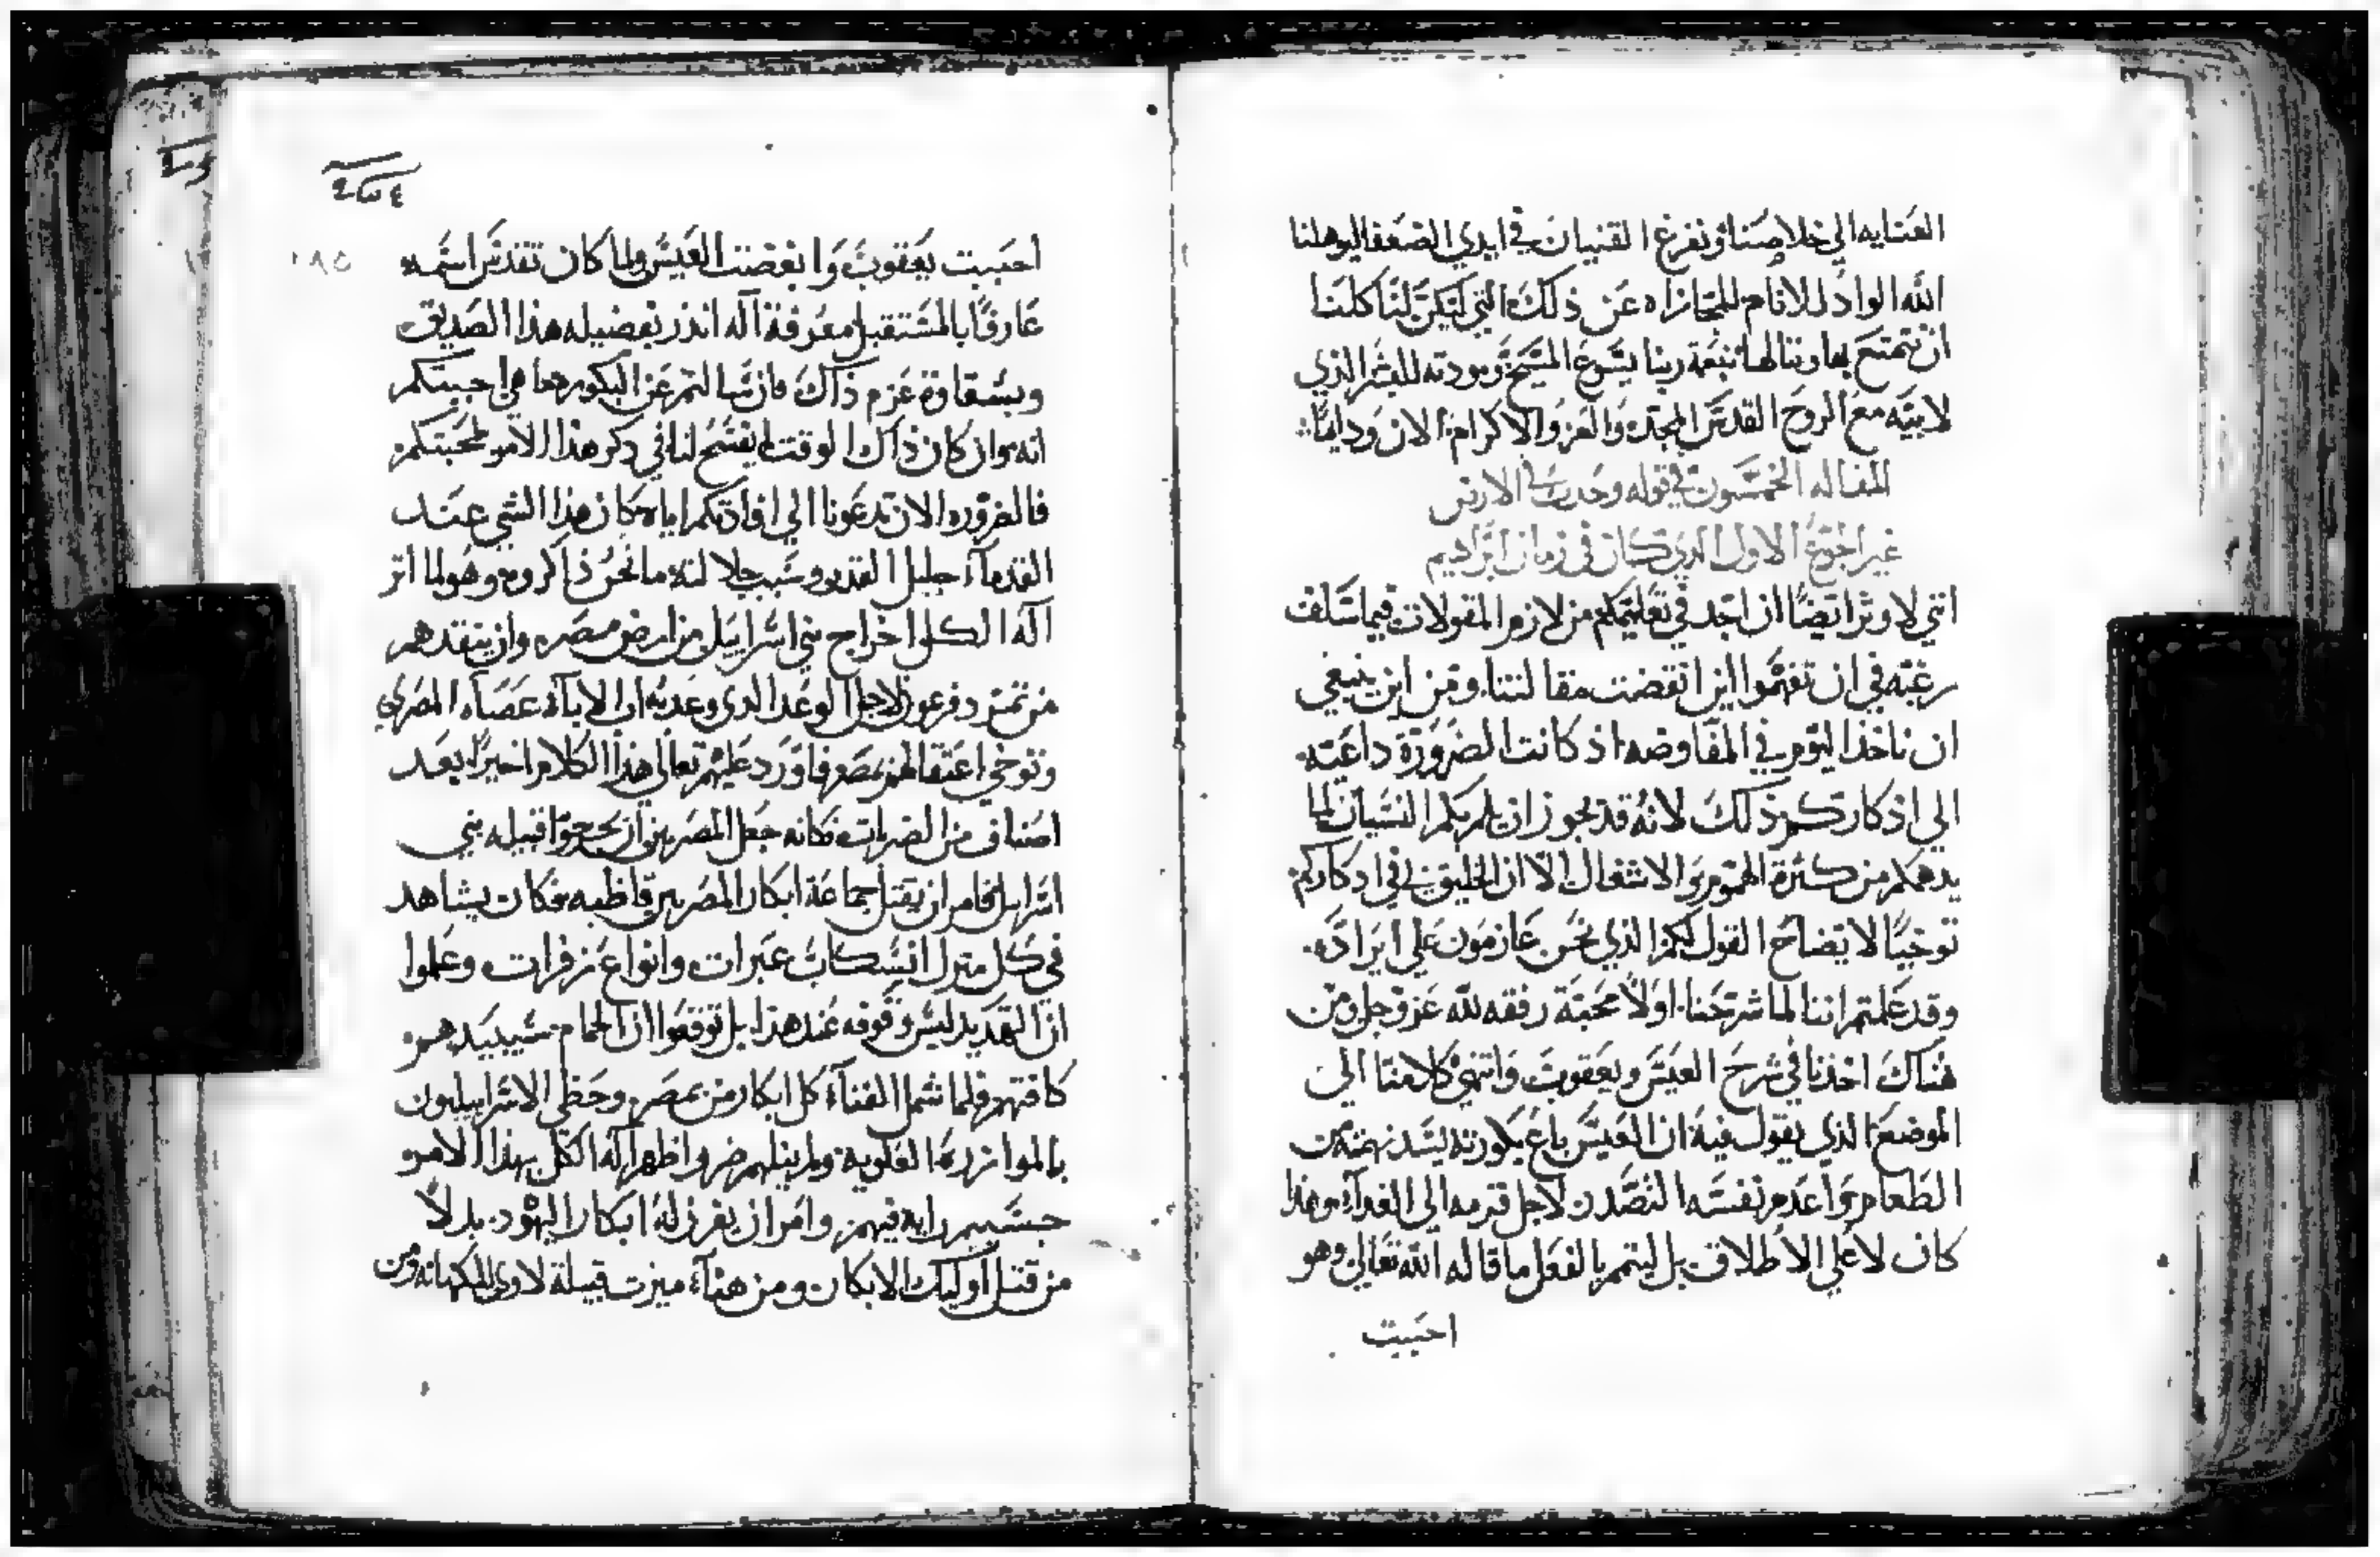 العنايه الي خلاصنا ونفرغ القنيان في ايدي الضعفا ليوهلنا
الله الواد للانام للمجازاه عن ذلك التي ليكن لنا كلنا
ان نتمتع بها وننالها بنعمة ربنا يسوع المسيح ومودته للبشر الذي
لابيه مع الروح القدس المجد والعز والاكرام الان ودايمًا
المقاله الخمسون في قوله وحدث الارض
غير الجوع الاول الذي كان في زمان ابراهيم
انني لاوثر ايضًا ان اجد في تعليمكم من لازم المقولات فيما سلف
رغبه في ان تفهموا اين انقضت مقالتنا ومن اين ينبغي
ان ناخذ اليوم في المفاوضه اذ كانت الضرورة داعيه
الي اذكاركم ذلك لانه قد يجوز ان يلم بكم النسيان لما
يدهمكم من كثرة الهموم والاشغال الا ان الخليق بي في ادكاركم
توخيًا لايضاح القول لكم الذي نحن عازمون علي ايراده
وقد علمتم اننا لما شرحنا اولاً محبة رفقه لله عز وجل ومن
هناك اخذنا في شرح العيس ويعقوب وانتهي كلامنا الي
الموضع الذي يقول فيه ان العيس باع بكورته ليسد نهمته من
الطعام واعدم نفسه التصدر لاجل قرمه الي الغداء وهذا
كان لا علي الاطلاق بل ليتم بالفعل ما قاله الله تعالي وهو
احببت
٤٣٤
١٨٥
احببت يعقوب وابغضت العيس ولما كان تقدس اسمه
عارفًا بالمستقبل معرفة اله انذر بفضيله هذا الصديق
وبشقاوة عزم ذاك فان سالتم عن البكوره ما هي اجبتكم
انه وان كان ذاك الوقت لم يفسح لنا في ذكر هذا الامر لمحبتكم
فالضروره الان تدعونا الي افادتكم اياه كان هذا الشي عند
القدماء جليل القدر وسبب جلالته ما نحن ذاكروه وهو لما اثر
اله الكل اخراج بني اسراييل من ارض مصر وان ينقذهم
من تمرد فرعون لاجل الوعد الذي وعد به الاباء عصاه المصري
وتوخي اعتقالهم بمصر فاورد عليهم تعالي هذا الكلام اخيرًا بعد
اصناف من الضربات فكانه جعل المصريين ان يخرجوا قبيله بني
اسراييل فامر ان يقتل جماعة ابكار المصريين قاطبه فكان يشاهد
في كل منزل انسكاب عبرات وانواع زفرات وعلموا
ان التهديد ليس وقوفه عند هذا بل توقعوا ان الحمام سيبيدهم
كافتهم فلما شمل الفناء كل ابكار من بمصر وحظي الاسراييليون
بالموازره العلويه ولم ينلهم ضر واظهر اله الكل بهذا الامر
جسيم رايه فيهم وامر ان يفرز له ابكار اليهود بدلاً
من قتل اوليك الابكار ومن هناء ميزت قبيلة لاوي للكهانه ومن